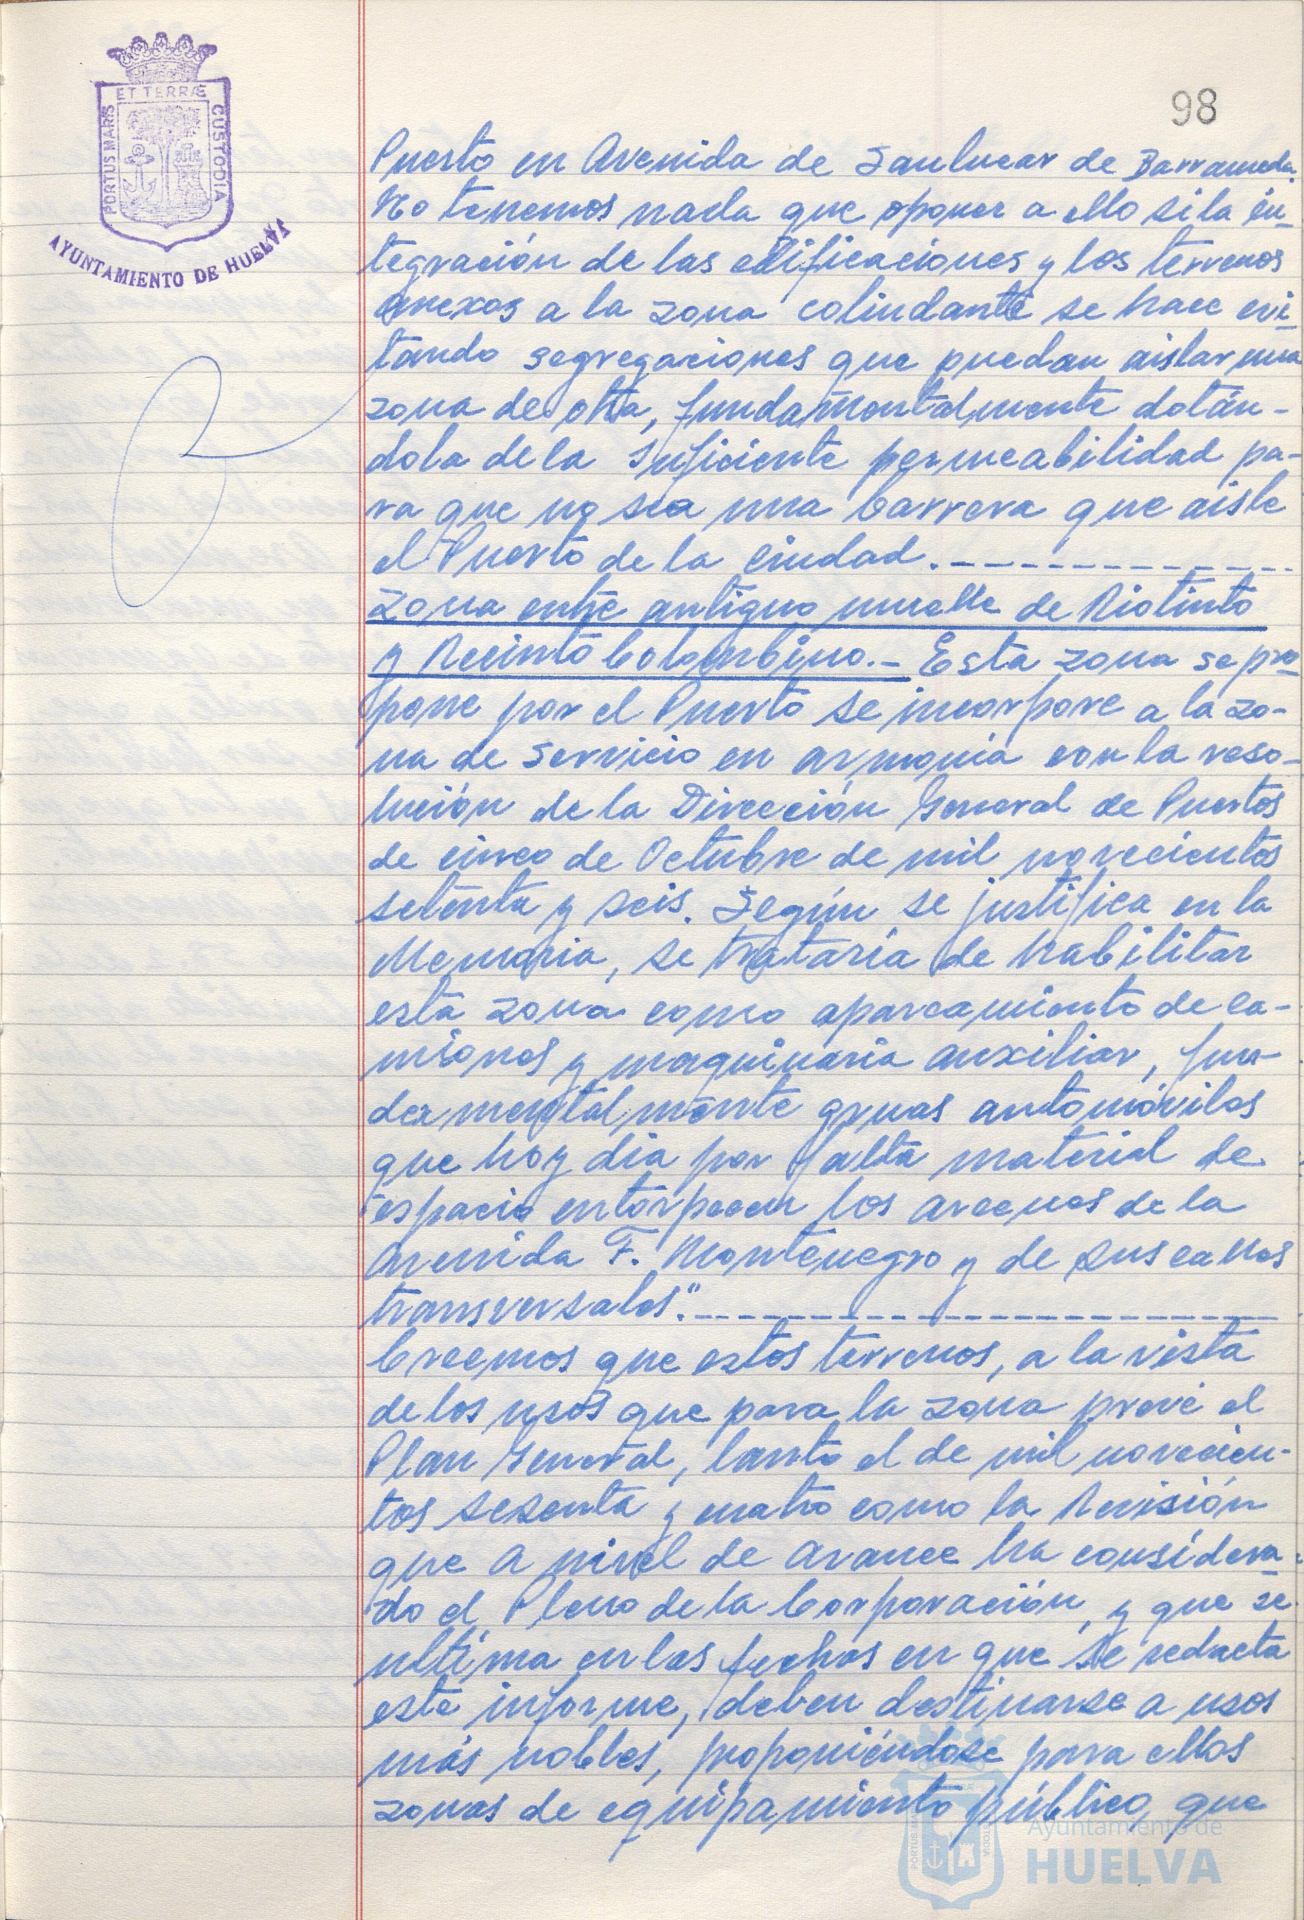 ET TERRÆ
PORTUS MARIS
CUSTODIA
AYUNTAMIENTO DE HUELVA
98
Puerto en Avenida de Sanlucar de Barrameda.
No tenemos nada que oponer a ello si la in-
tegración de las edificaciones y los terrenos
anexos a la zona colindante se hace evi-
tando segregaciones que puedan aislar una
zona de otra, fundamentalmente dotán-
dola de la suficiente permeabilidad pa-
ra que no sea una barrera que aisle
el Puerto de la ciudad.
Zona entre antiguo muelle de Riotinto
y Recinto Colombino.- Esta zona se pro-
pone por el Puerto se incorpore a la zo-
na de servicio en armonía con la reso-
lución de la Dirección General de Puertos
de cinco de Octubre de mil novecientos
setenta y seis. Según se justifica en la
Memoria, se trataría de habilitar
esta zona como aparcamiento de ca-
miones y maquinaria auxiliar, fun-
damentalmente gruas automóviles
que hoy dia por falta material de
espacio entorpecen los arcenes de la
Avenida F. Montenegro y de sus calles
transversales".
Creemos que estos terrenos, a la vista
de los usos que para la zona prevé el
Plan General, tanto el de mil novecien-
tos sesenta y cuatro como la Revisión
que a nivel de avance ha considera-
do el Pleno de la Corporación, y que se
ultima en las fechas en que se redacta
este informe, deben destinarse a usos
más nobles, proponiéndose para ellos
zonas de equipamiento público, que
Ayuntamiento de
HUELVA